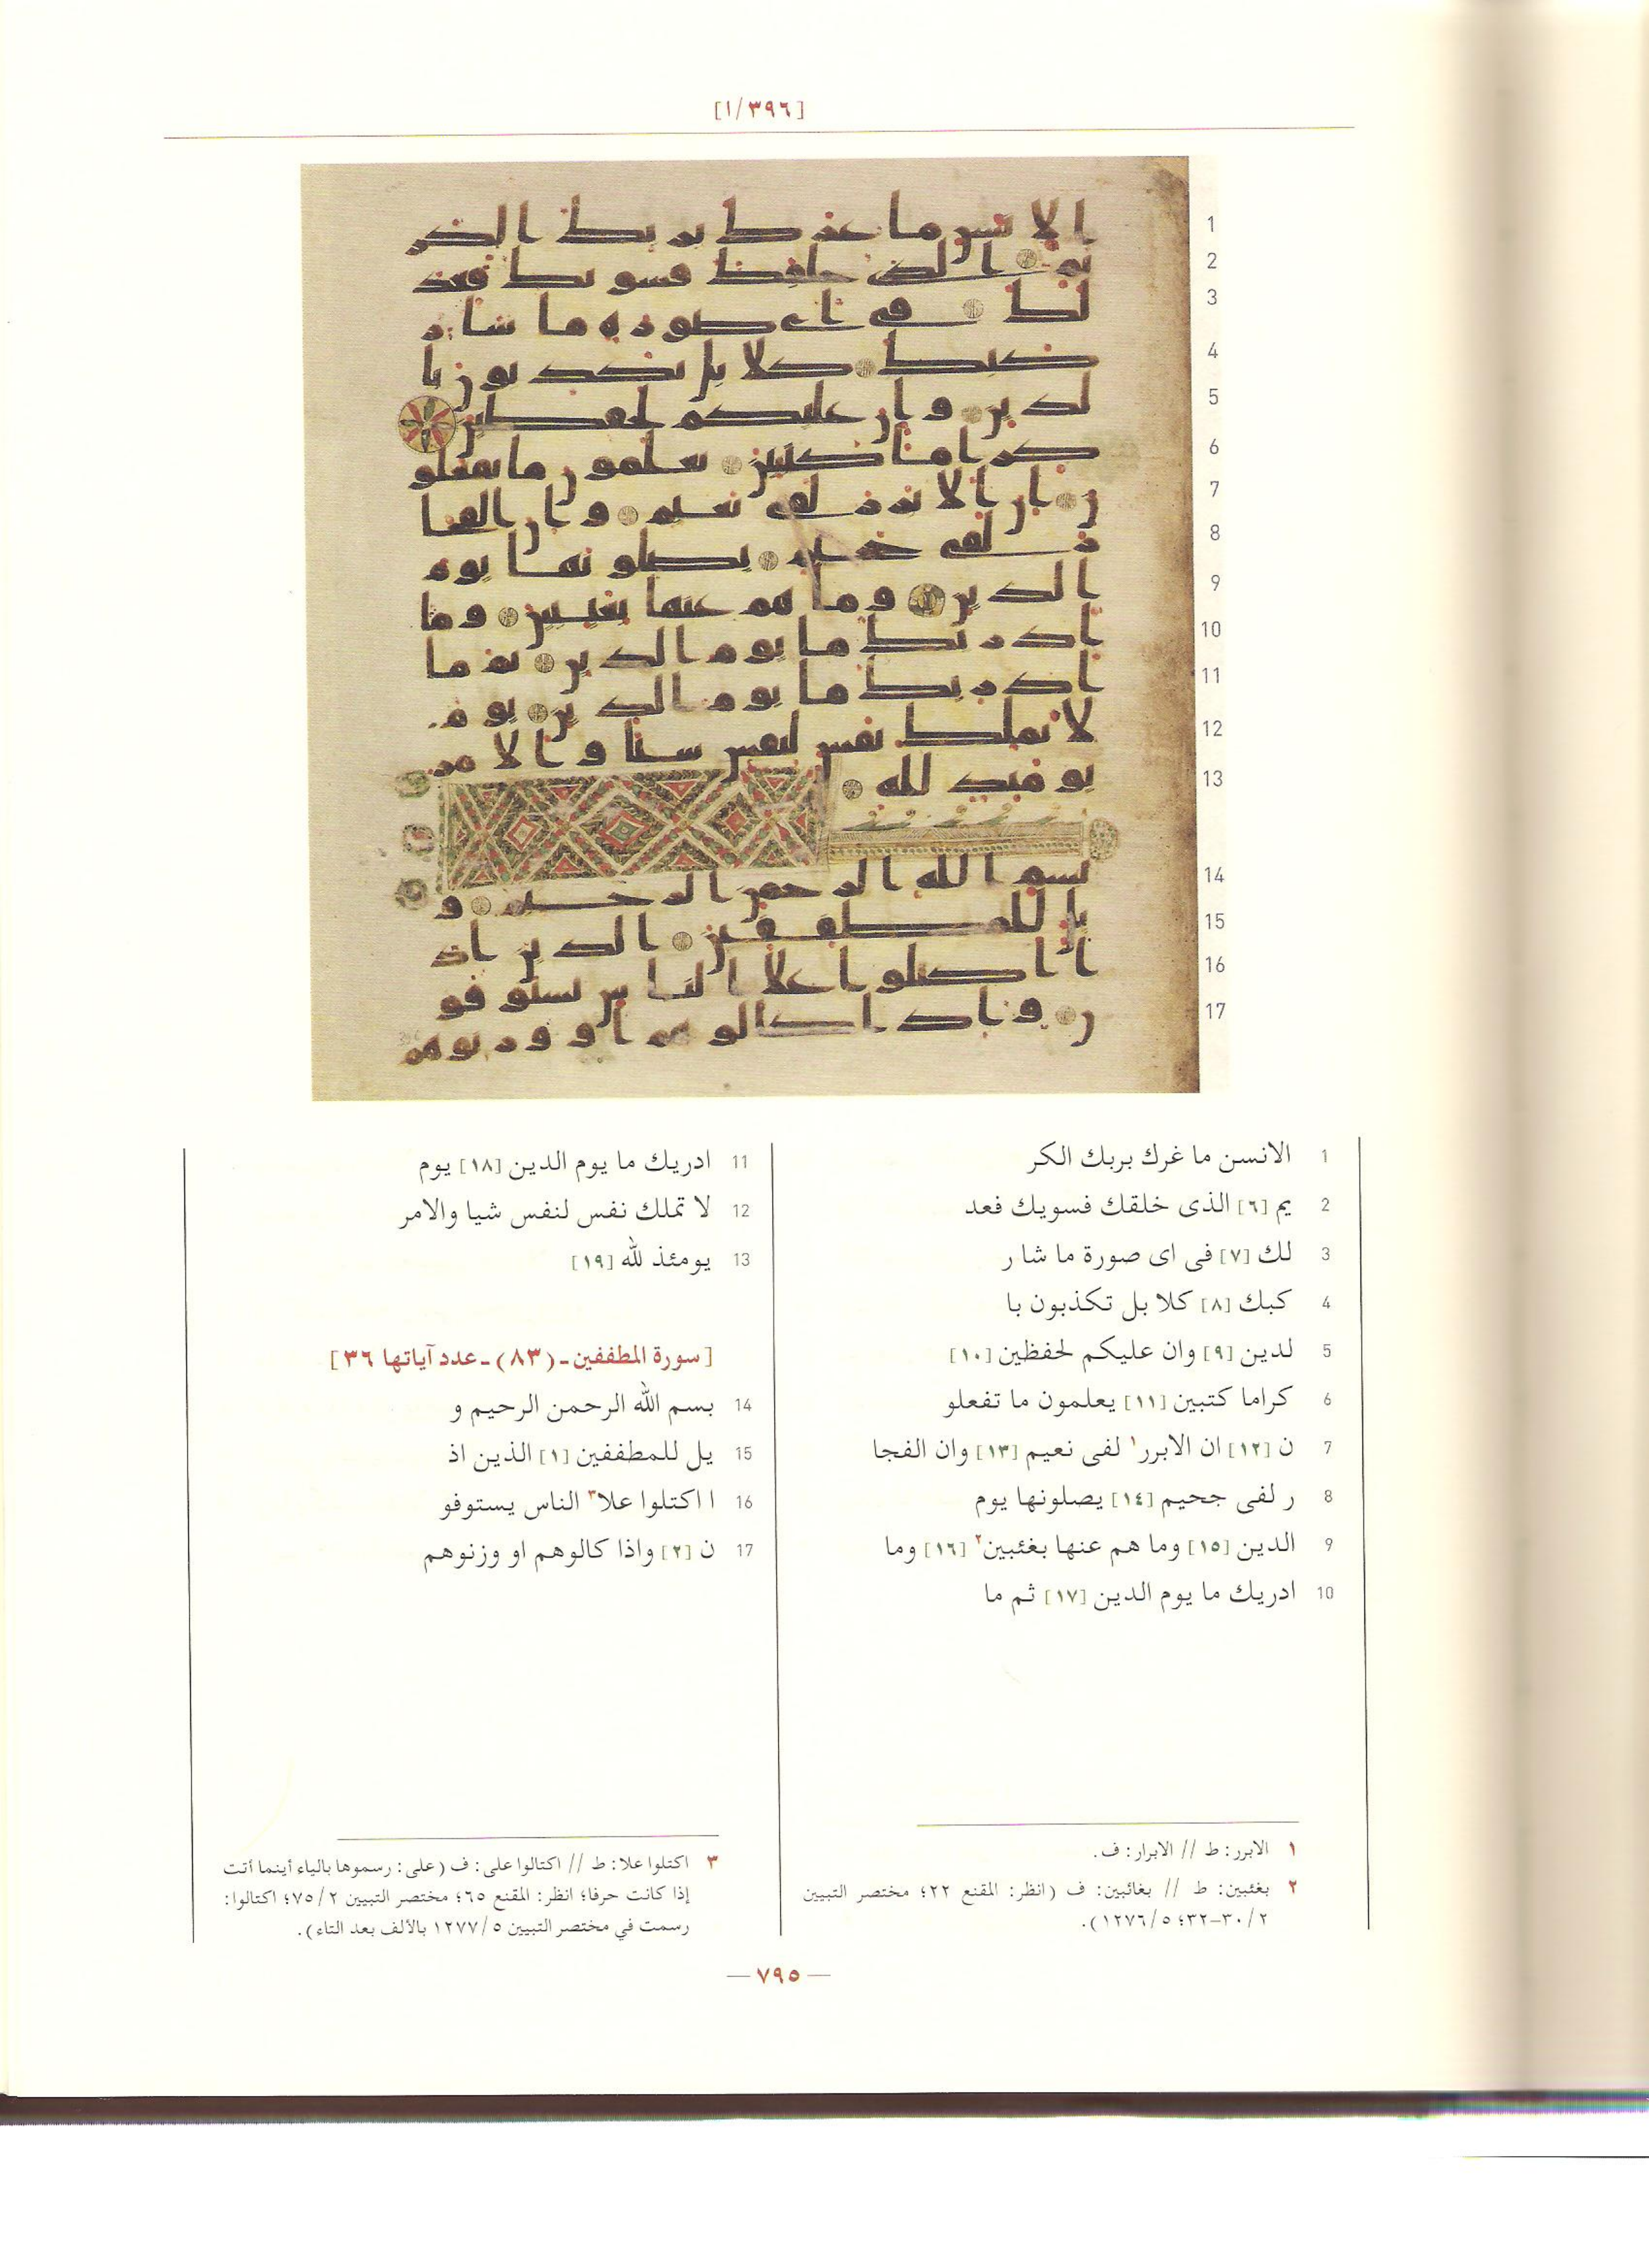 [٣٩٦/١]
1 الانسن ما غرك بربك الكر
2 يم [٦] الذى خلقك فسويك فعد
3 لك [٧] فى اى صورة ما شا ر
4 كبك [٨] كلا بل تكذبون با
5 لدين [٩] وان عليكم لحفظين [١٠]
6 كراما كتبين [١١] يعلمون ما تفعلو
7 ن [١٢] ان الابرر١ لفى نعيم [١٣] وان الفجا
8 ر لفى جحيم [١٤] يصلونها يوم
9 الدين [١٥] وما هم عنها بغئبين٢ [١٦] وما
10 ادريك ما يوم الدين [١٧] ثم ما
11 ادريك ما يوم الدين [١٨] يوم
12 لا تملك نفس لنفس شيا والامر
13 يومئذ لله [١٩]
[سورة المطففين ـ (٨٣) ـ عدد آياتها ٣٦]
14 بسم الله الرحمن الرحيم و
15 يل للمطففين [١] الذين اذ
16 ا اكتلوا علا٣ الناس يستوفو
17 ن [٢] واذا كالوهم او وزنوهم
١ الابرر: ط // الابرار: ف.
٢ بغئبين: ط // بغائبين: ف (انظر: المقنع ٢٢؛ مختصر التبيين
٣٠/٢-٣٢؛ ١٢٧٦/٥).
٣ اكتلوا علا: ط // اكتالوا على: ف (على: رسموها بالياء أينما أتت
إذا كانت حرفا؛ انظر: المقنع ٦٥؛ مختصر التبيين ٧٥/٢؛ اكتالوا:
رسمت في مختصر التبيين ١٢٧٧/٥ بالألف بعد التاء).
— ٧٩٥ —